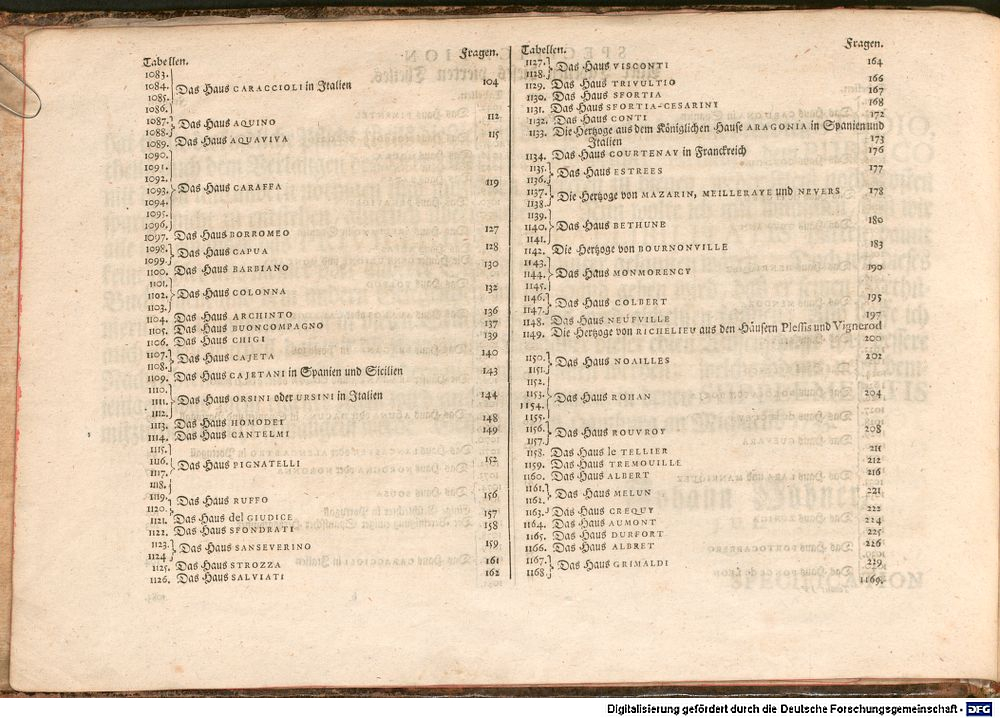 Tabellen. Fragen.
1083.
1084. Das Haus CARACCIOLI in Italien 104
1085.
1086.
1087. Das Haus AQUINO 112
1088.
1089. Das Haus AQUAVIVA 115
1090.
1091.
1092.
1093. Das Haus CARAFFA 119
1094.
1095.
1096.
1097. Das Haus BORROMEO 127
1098. Das Haus CAPUA 128
1099.
1100. Das Haus BARBIANO 130
1101.
1102. Das Haus COLONNA 132
1103.
1104. Das Haus ARCHINTO 136
1105. Das Haus BUONCOMPAGNO 137
1106. Das Haus CHIGI 139
1107. Das Haus CAJETA 140
1108.
1109. Das Haus CAJETANI in Spanien und Sicilien 143
1110.
1111. Das Haus ORSINI oder URSINI in Italien 144
1112.
1113. Das Haus HOMODEI 148
1114. Das Haus CANTELMI 149
1115.
1116. Das Haus PIGNATELLI 152
1117.
1118.
1119. Das Haus RUFFO 156
1120.
1121. Das Haus del GIUDICE 157
1122. Das Haus SFONDRATI 158
1123. Das Haus SANSEVERINO 159
1124
1125. Das Haus STROZZA 161
1126. Das Haus SALVIATI 162
Tabellen. Fragen.
1127. Das Haus VISCONTI 164
1128.
1129. Das Haus TRIVULTIO 166
1130. Das Haus SFORTIA 167
1131. Das Haus SFORTIA-CESARINI 168
1132. Das Haus CONTI 172
1133. Die Hertzoge aus dem Königlichen Hause ARAGONIA in Spanien und
Italien 173
1134. Das Haus COURTENAY in Franckreich 176
1135. Das Haus ESTREES 177
1136.
1137. Die Hertzoge von MAZARIN, MEILLERAYE und NEVERS 178
1138.
1139.
1140. Das Haus BETHUNE 180
1141.
1142. Die Hertzoge von BOURNONVILLE 183
1143.
1144. Das Haus MONMORENCY 190
1145.
1146. Das Haus COLBERT 195
1147.
1148. Das Haus NEUFVILLE 197
1149. Die Hertzoge von RICHELIEU aus den Häusern Plessis und Vignerod
200
1150. Das Haus NOAILLES 202
1151.
1152.
1153. Das Haus ROHAN 204
1154.
1155.
1156. Das Haus ROUVROY 208
1157.
1158. Das Haus le TELLIER 211
1159. Das Haus TREMOUILLE 212
1160. Das Haus ALBERT 216
1161. Das Haus MELUN 221
1162.
1163. Das Haus CREQUY 222
1164. Das Haus AUMONT 224
1165. Das Haus DURFORT 225
1166. Das Haus ALBRET 226
1167. Das Haus GRIMALDI 229
1168.
1169.
Digitalisierung gefördert durch die Deutsche Forschungsgemeinschaft - DFG